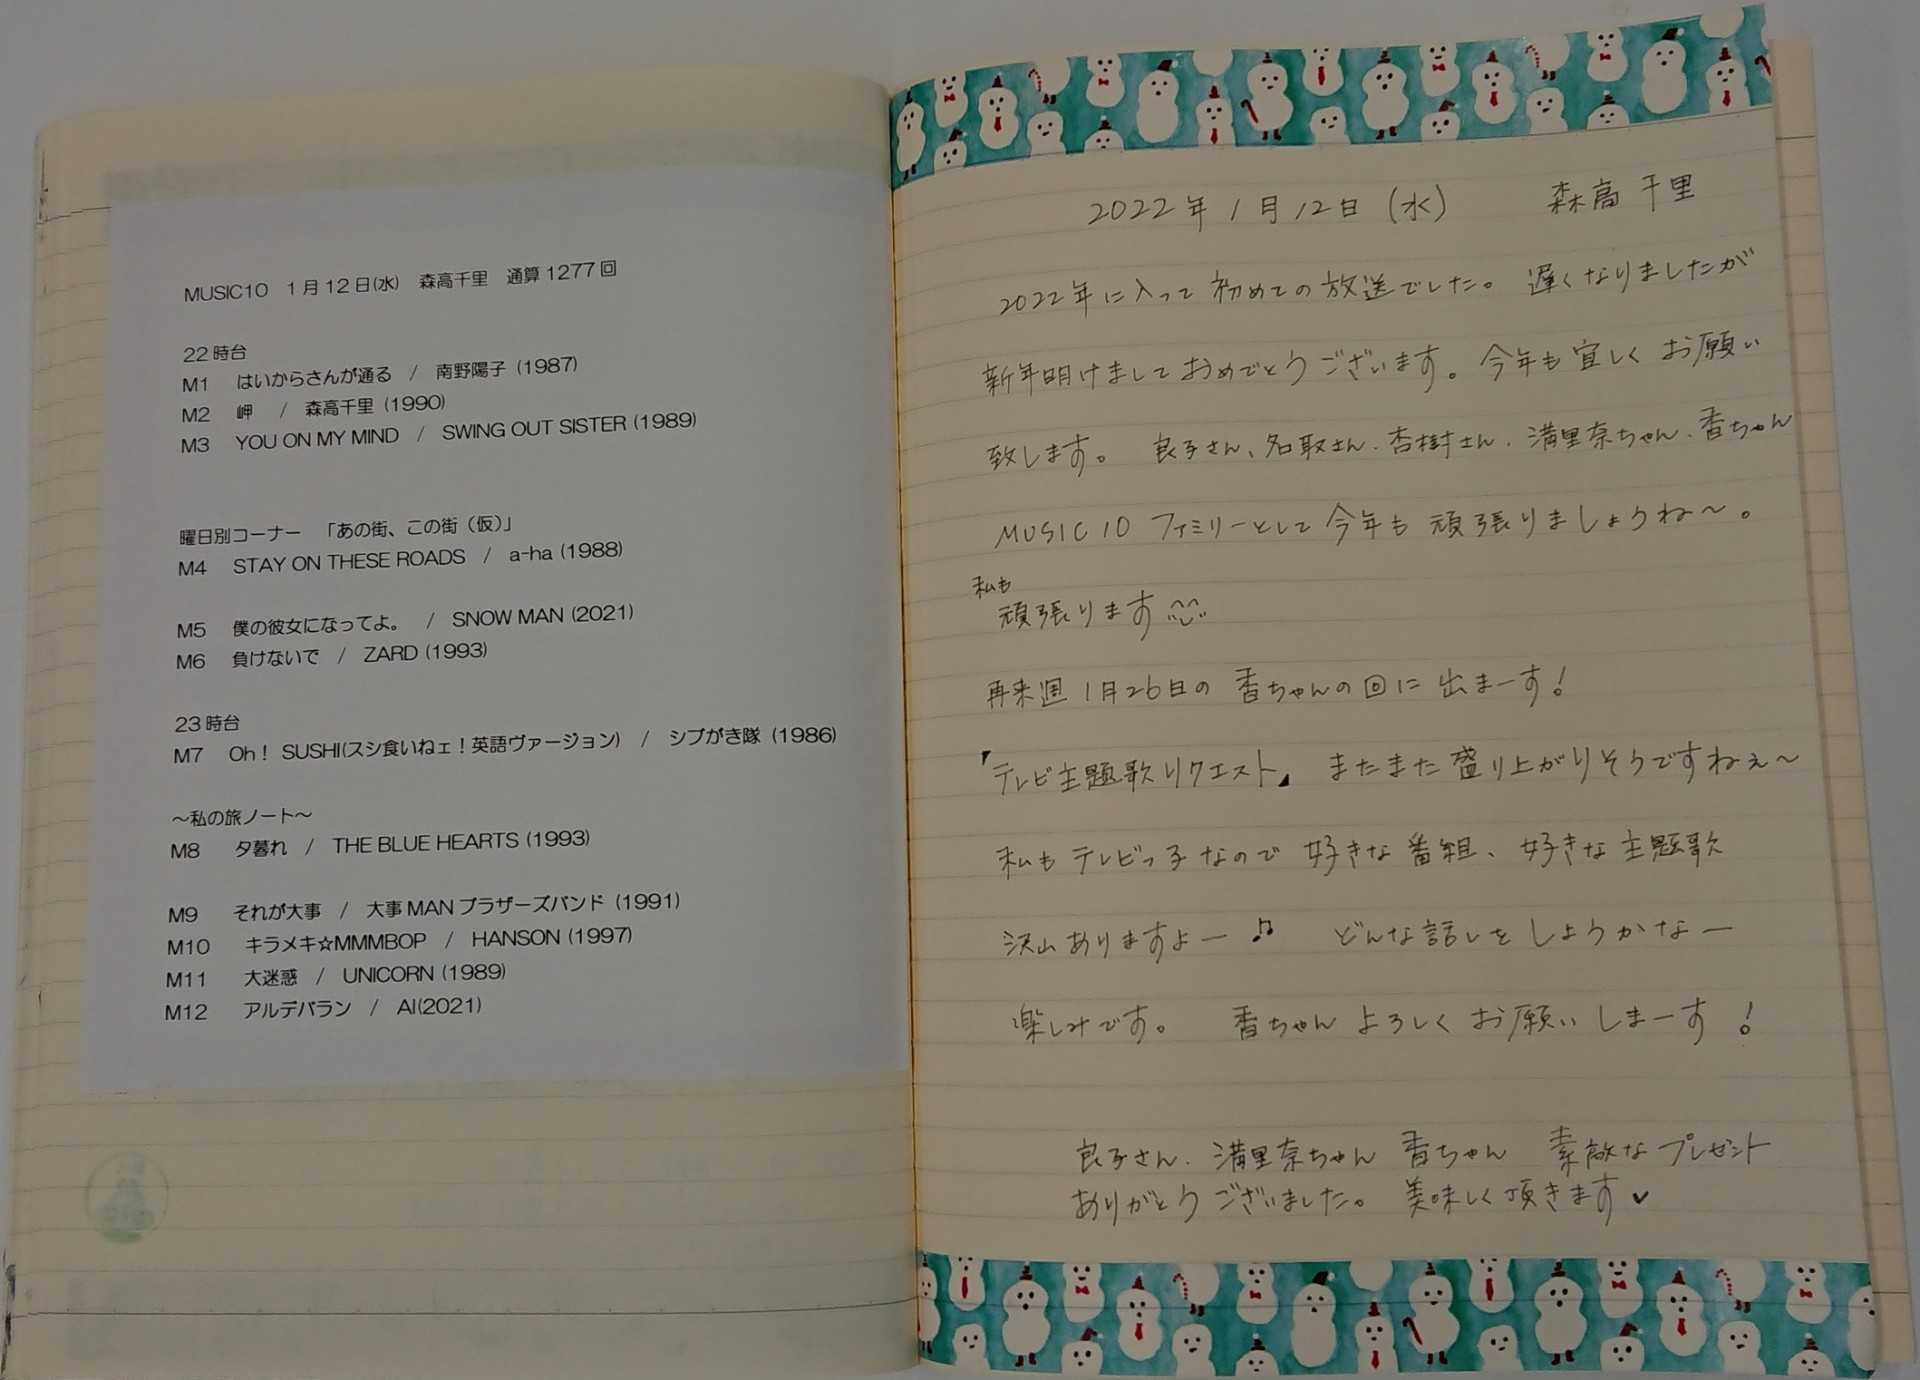 MUSIC10　1月12日(水)　森高千里　通算1277回
22時台
M1　はいからさんが通る　/　南野陽子 (1987)
M2　岬　/　森高千里 (1990)
M3　YOU ON MY MIND　/　SWING OUT SISTER (1989)
曜日別コーナー　「あの街、この街（仮）」
M4　STAY ON THESE ROADS　/　a-ha (1988)
M5　僕の彼女になってよ。　/　SNOW MAN (2021)
M6　負けないで　/　ZARD (1993)
23時台
M7　Oh！ SUSHI(スシ食いねェ！英語ヴァージョン)　/　シブがき隊 (1986)
～私の旅ノート～
M8　夕暮れ　/　THE BLUE HEARTS (1993)
M9　それが大事　/　大事MANブラザーズバンド (1991)
M10　キラメキ☆MMMBOP　/　HANSON (1997)
M11　大迷惑　/　UNICORN (1989)
M12　アルデバラン　/　AI(2021)
2022年1月12日(水)　森高千里
2022年に入って初めての放送でした。遅くなりましたが
新年明けましておめでとうございます。今年も宜しくお願い
致します。　良子さん、名取さん、杏樹さん、満里奈ちゃん、香ちゃん
MUSIC10 ファミリーとして今年も頑張りましょうね～。
私も
頑張ります^^
再来週1月26日の香ちゃんの回に出まーす！
「テレビ主題歌リクエスト」またまた盛り上がりそうですねぇ～
私もテレビっ子なので好きな番組、好きな主題歌
沢山ありますよー♫　どんな話しをしようかなー
楽しみです。　香ちゃんよろしくお願いしまーす！
良子さん、満里奈ちゃん　香ちゃん　素敵なプレゼント
ありがとうございました。　美味しく頂きます♥